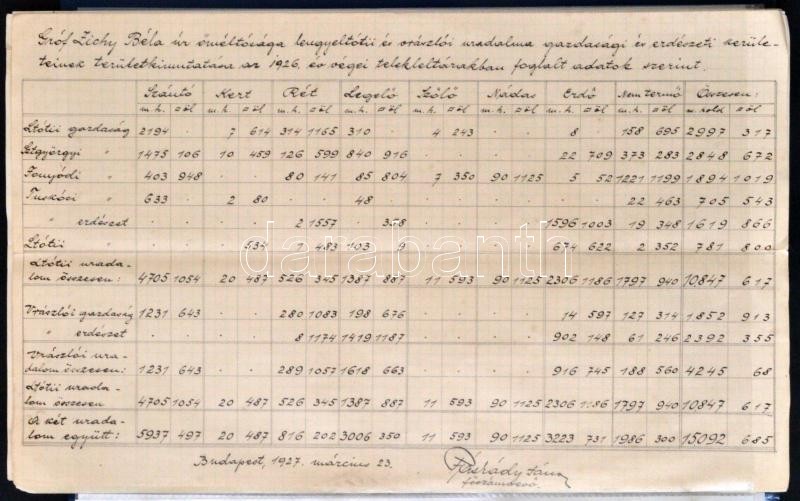 Gróf Zichy Béla úr őméltósága lengyeltótii és vrászlói uradalma gazdasági és erdészeti kerüle-
teinek területkimutatása az 1926. év végei telekleltárakban foglalt adatok szerint.
Szántó Kert Rét Legelő Szőlő Nádas Erdő Nem termő Összesen:
m.h. □öl m.h. □öl m.h. □öl m.h. □öl m.h. □öl m.h. □öl m.h. □öl m.h. □öl m.hold □öl
Ltótii gazdaság 2194 · 7 614 314 1165 310 · 4 243 · · 8 · 158 695 2997 317
Sztgyörgyi " 1475 106 10 459 126 599 840 916 · · · · 22 709 373 283 2848 672
Fonyódi " 403 948 · · 80 141 85 804 7 350 90 1125 5 52 1221 1199 1894 1019
Tuskósi " 633 · 2 80 · · 48 · · · · · · · 22 463 705 543
" erdészet · · · · 2 1557 · 358 · · · · 1596 1003 19 348 1619 866
Ltótii " · · · 534 1 483 103 9 · · · · 674 622 2 352 781 800
Ltótii urada-
lom összesen: 4705 1054 20 487 526 345 1387 887 11 593 90 1125 2306 1186 1797 940 10847 617
Vrászlói gazdaság 1231 643 · · 280 1083 198 676 · · · · 14 597 127 314 1852 913
" erdészet · · · · 8 1174 1419 1187 · · · · 902 148 61 246 2392 355
Vrászlói ura-
dalom összesen: 1231 643 · · 289 1057 1618 663 · · · · 916 745 188 560 4245 68
Ltótii urada-
lom összesen 4705 1054 20 487 526 345 1387 887 11 593 90 1125 2306 1186 1797 940 10847 617
A két urada-
lom együtt: 5937 497 20 487 816 202 3006 350 11 593 90 1125 3223 731 1986 300 15092 685
Budapest, 1927. március 23.
János
főszámvevő.
darabanth